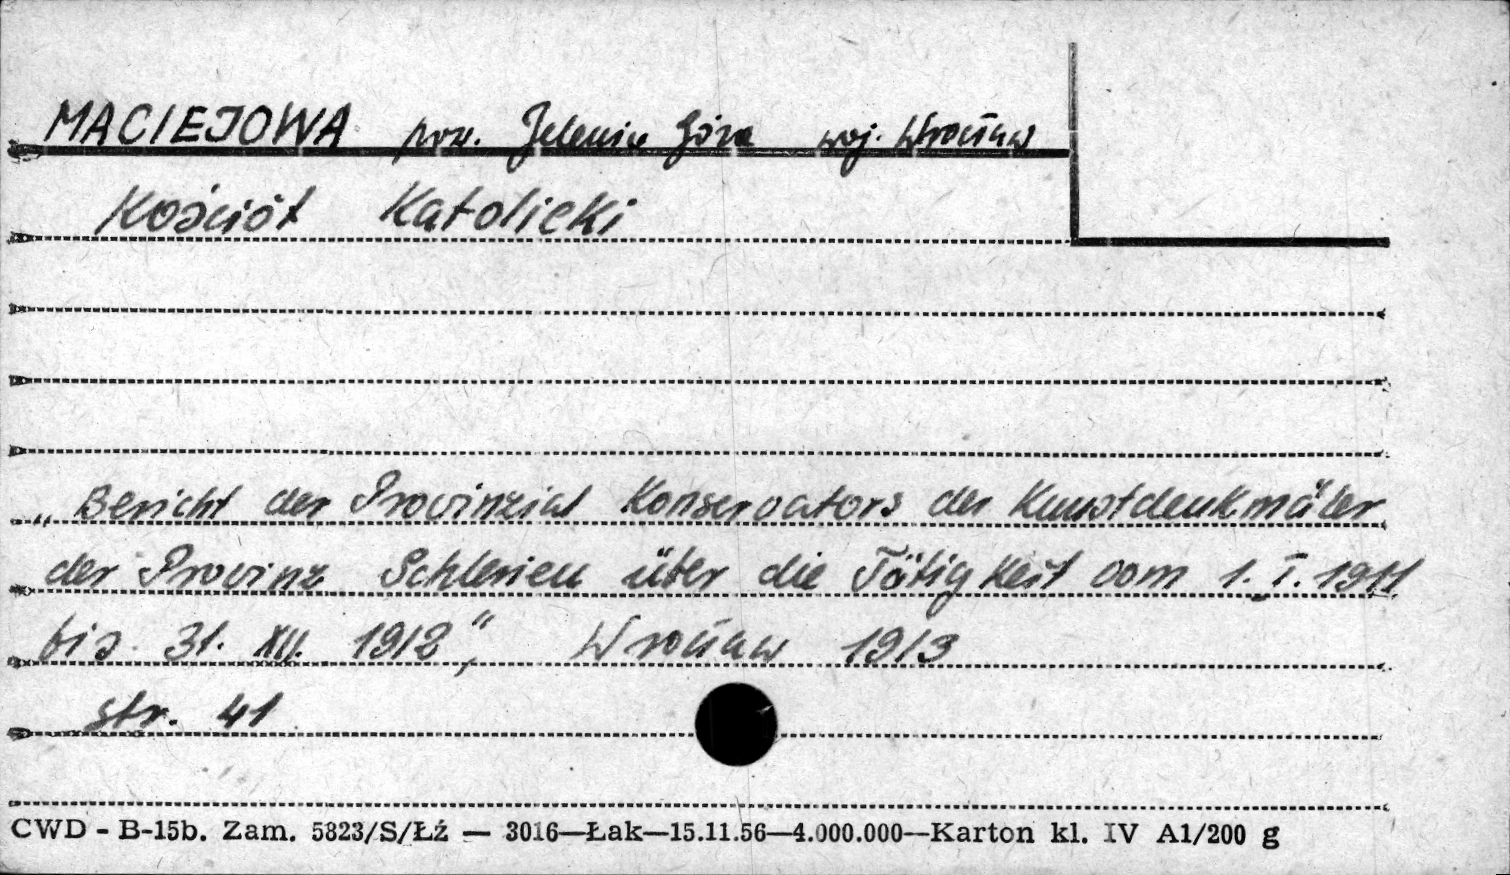 MACIEJOWA pow. Jelenia Góra woj. Wrocław
Kościół Katolicki
„Bericht der Provinzial Konservators der Kunstdenkmäler
der Provinz Schlesien über die Tätigkeit vom 1. I. 1911
bis 31. XII. 1912“, Wrocław 1913
str. 41
CWD - B-15b. Zam. 5823/S/Łź — 3016—Łak—15.11.56—4.000.000—Karton kl. IV A1/200 g